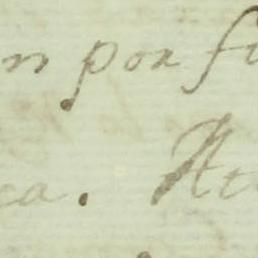 n por fi
ca. At